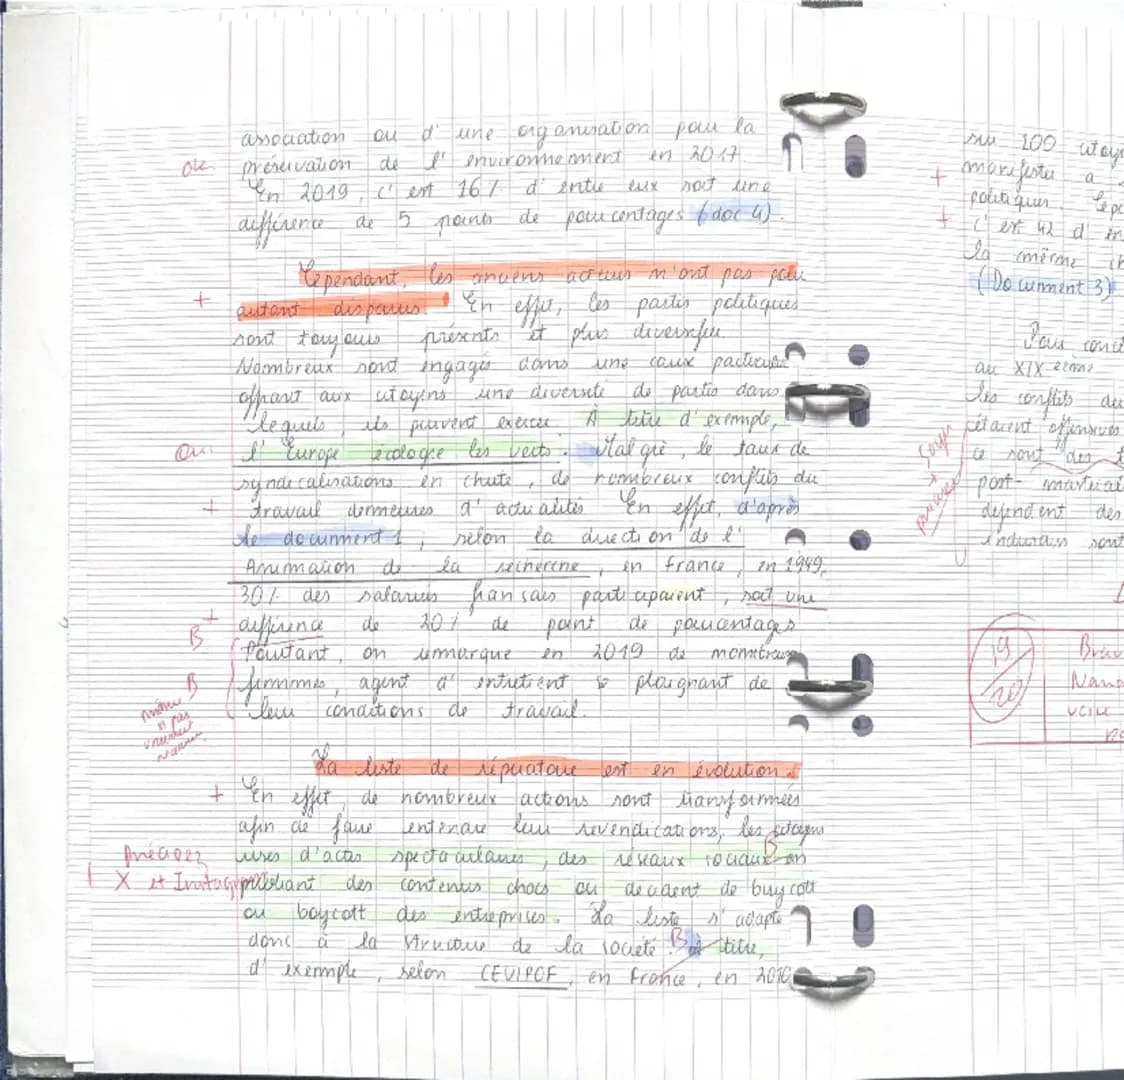 association ou d'une organisation pour la
ok préservation de l'environnement en 2017
En 2019, c'est 16% d'entre eux soit une
différence de 5 points de pourcentages (doc 4).
Cependant, les anciens acteurs n'ont pas pour
+ autant disparus En effet, les partis politiques
sont toujours présents et plus diversifié
Nombreux sont engagés dans une caux particulier
offrant aux citoyens une diversité de partis dans
lequels, ils peuvent exercer. À titre d'exemple,
Oui l'Europe écologie les verts. Malgré, le taux de
syndicalisations en chute, de nombreux conflits du
+ travail demeures d'actualités En effet, d'après
le document 1, selon la direction de l'
Animation de la recherche, en France, en 1949,
30% des salariés fransais participaient, soit une
+ différence de 20% de point de pourcentages
B Pourtant, on remarque en 2019 de nombreux
B femmes, agent d'entretient se plaignant de
leur conditions de travail.
même si pas vraiment
La liste de répertoire est en évolution.
+ En effet, de nombreux actions sont transformées
afin de faire entendre leur revendications, les citoyens
précisez uses d'actes spectaculaires, des réseaux sociaux B en
X et Instagram publiant des contenus chocs ou décident de buycott
ou boycott des entreprises. La liste s'adapte
donc à la structure de la société. B à titre,
d'exemple, selon CEVIPOF, en France, en 2010
sur 100 citoy
+ manifester a
politiques.
+ c'est 42 d'en
la même
(Document 3)
Pour conc
au XIX eme
les conflits du
étaient offensives
ce sont des
post-matérial
dépendent des
sont
19/20
Brav